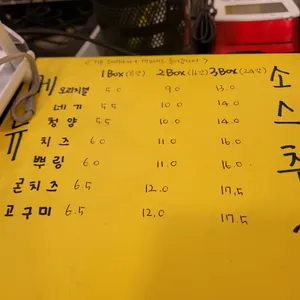 1Box 2Box 3Box
오리지널 5.0 9.0 13.0
네기 5.5 10.0 14.0
청양 5.5 10.0 14.0
치즈 6.0 11.0 16.0
뿌링 6.0 11.0 16.0
콘치즈 6.5 12.0 17.5
고구미 6.5 12.0 17.5
소
스
추